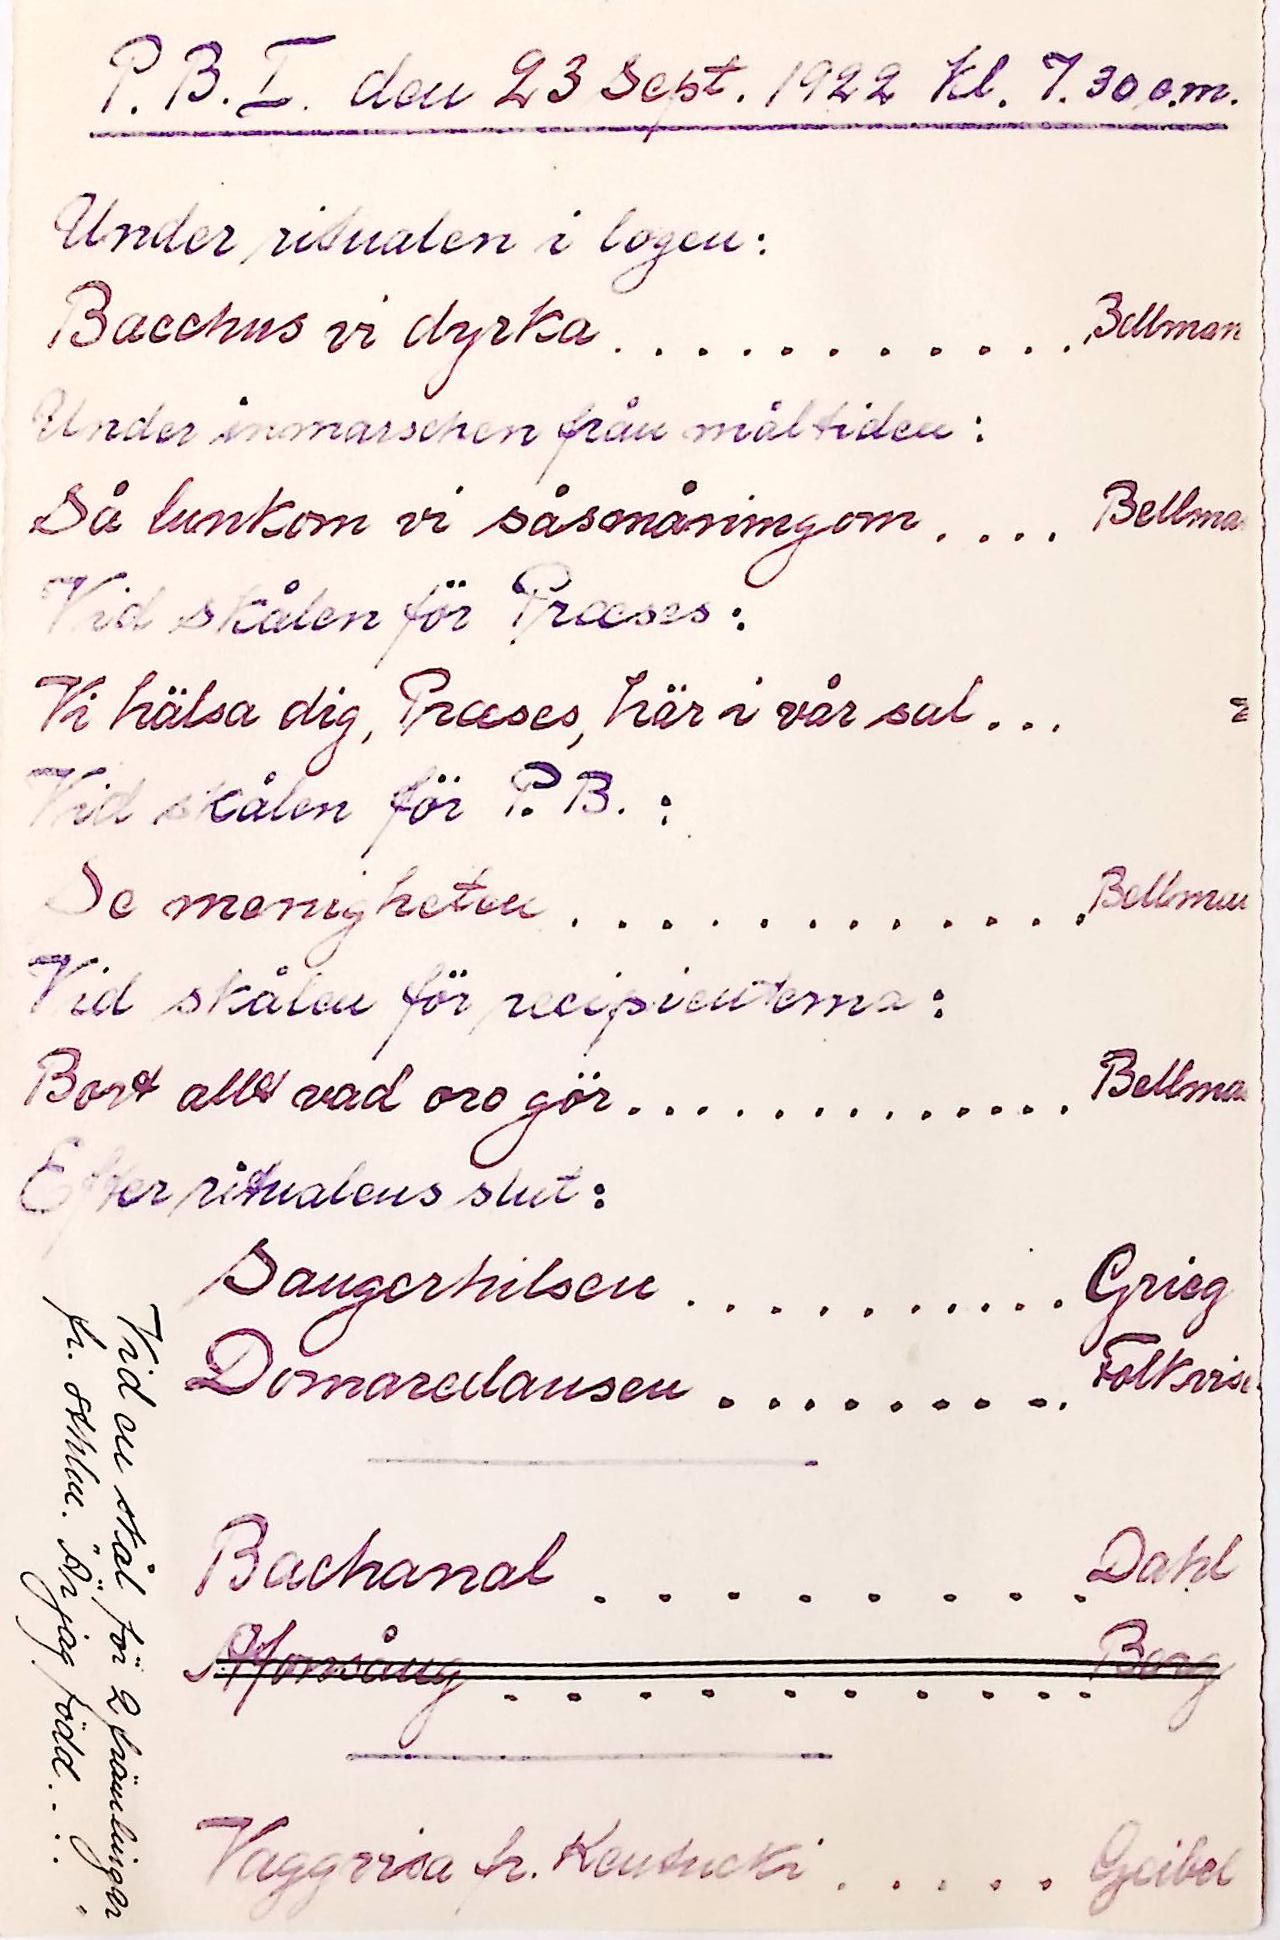 P.B.I. den 23 Sept. 1922 Kl. 7.30 e.m.
Under ritualen i logen:
Bacchus vi dyrka . . . . . . . . . . . . Bellman
Under inmarschen från måltiden:
Så lunkom vi såsmåningom . . . . Bellma
Vid skålen för Præses:
Vi hälsa dig, Præses, här i vår sal . . .
Vid skålen för P.B.:
Se menigheten . . . . . . . . . . . . Bellman
Vid skålen för recipienterna:
Bort allt vad oro gör . . . . . . . . . . . . . . Bellma
Efter ritualens slut:
Sangerhilsen . . . . . . . . . . . Grieg
Domaredansen . . . . . . . . . Folkvise
Bachanal . . . . . . . . Dahl
Aftonsång . . . . . . . . . . . Berg
Vaggvisa fr. Kentucki . . . . . Geibel
Vid en skål för 2 främlingar
fr. Sthlm. Är jag född . . . .